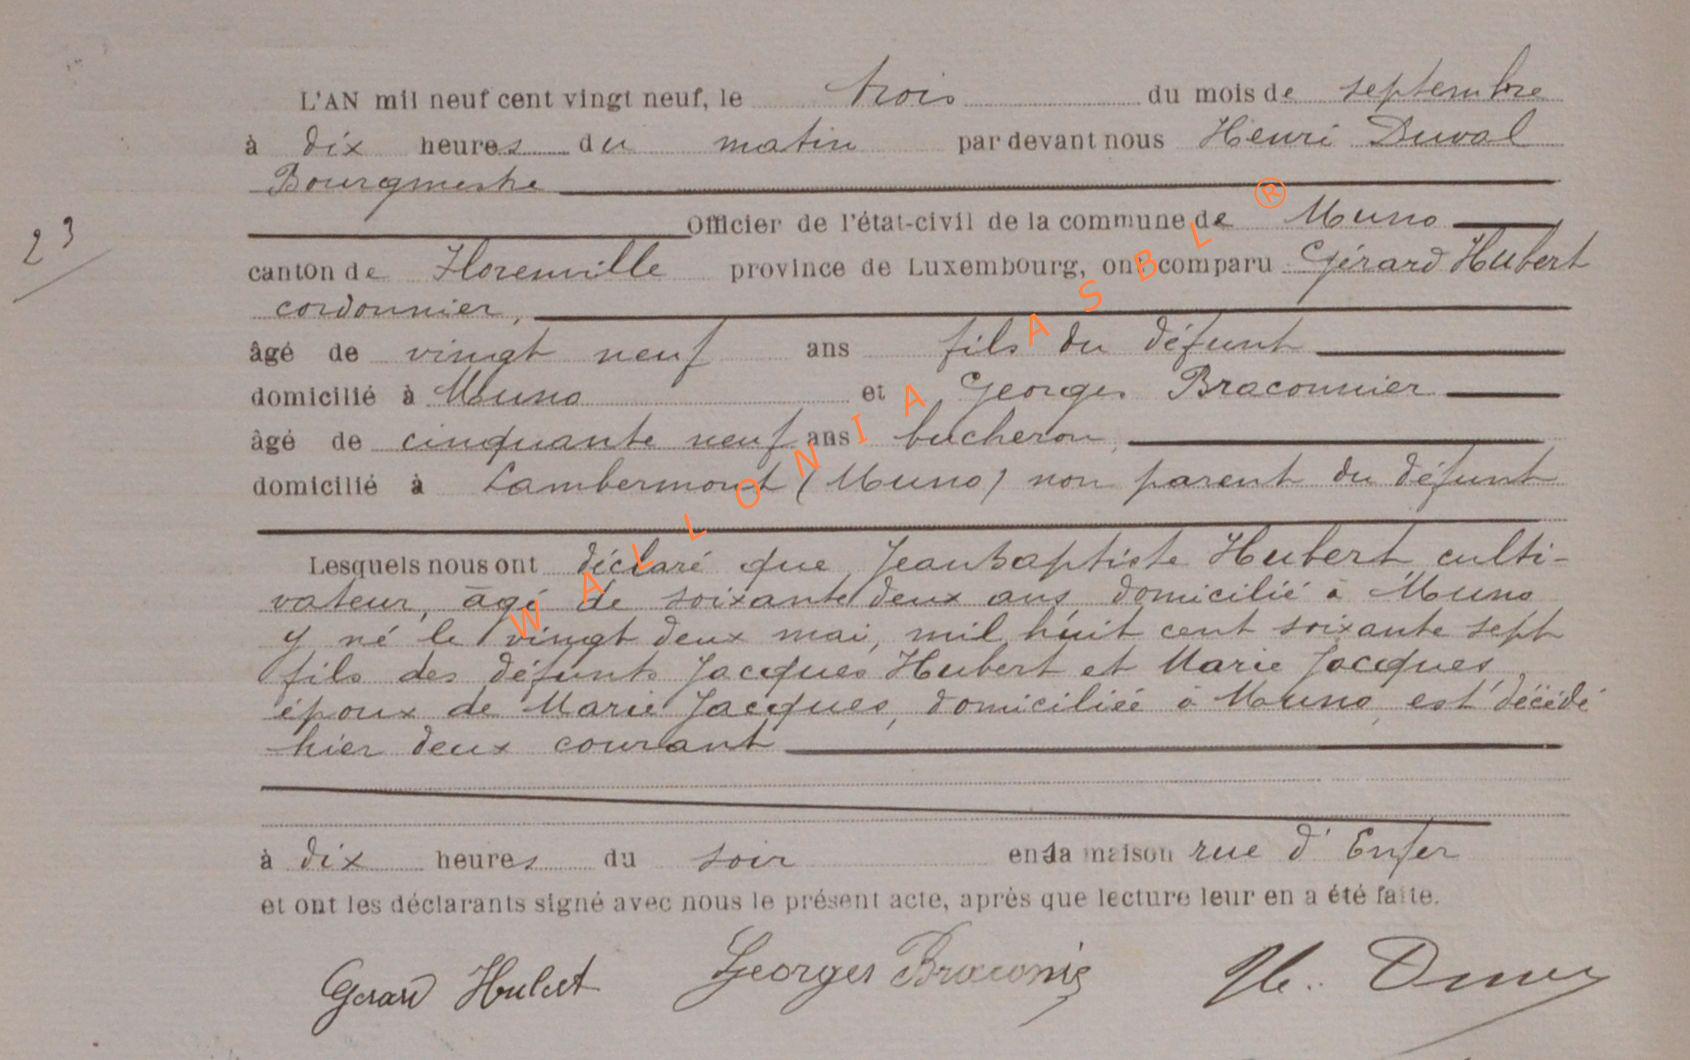 L'AN mil neuf cent vingt neuf, le trois du mois de septembre
à dix heures du matin par devant nous Henri Duval
Bourgmestre
Officier de l'état-civil de la commune de Muno
23
canton de Florenville province de Luxembourg, ont comparu Gérard Hubert
cordonnier,
âgé de vingt neuf ans fils du défunt
domicilié à Muno et Georges Braconnier
âgé de cinquante neuf ans bucheron,
domicilié à Lambermont (Muno) non parent du défunt
Lesquels nous ont déclaré que Jean Baptiste Hubert culti-
vateur, âgé de soixante deux ans domicilié à Muno
y né le vingt deux mai, mil huit cent soixante sept
fils des défunts Jacques Hubert et Marie Jacques,
époux de Marie Jacques, domiciliée à Muno, est décédé
hier deux courant
à dix heures du soir en sa maison rue d'Enfer
et ont les déclarants signé avec nous le présent acte, après que lecture leur en a été faite.
Gerard Hubert Georges Braconnier H. Duval
WALLONIA ASBL ®